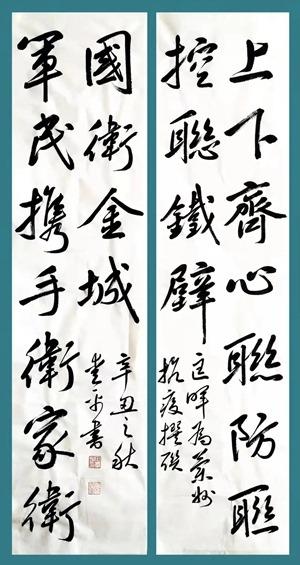 上下齊心聯防聯
控聯鐵壁
匡暉為蘭州
抗疫撰聯
軍民攜手衛家衛
國衛金城
辛丑之秋
書